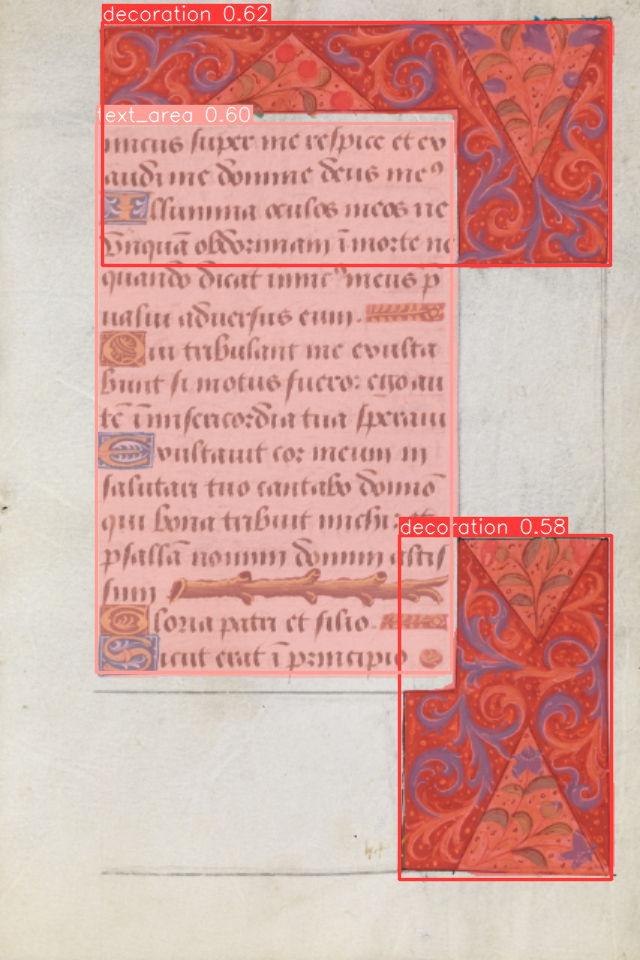 decoration 0.62
text_area 0.60
meus super me respice et ex
audi me domine deus meꝰ
Illumina oculos meos ne
vnquā obdormiam ī morte ne
quando dicat inimicꝰ meus p
ualui aduersus eum.
Qui tribulant me exulta
bunt si motus fuero: ego au
tē ī misericordia tua speraui
Exultauit cor meum in
salutari tuo cantabo domīo
qui bona tribuit michi: et
decoration 0.58
psallā nomini domini altis
simi
Gloria patri et filio.
Sicut erat ī principio